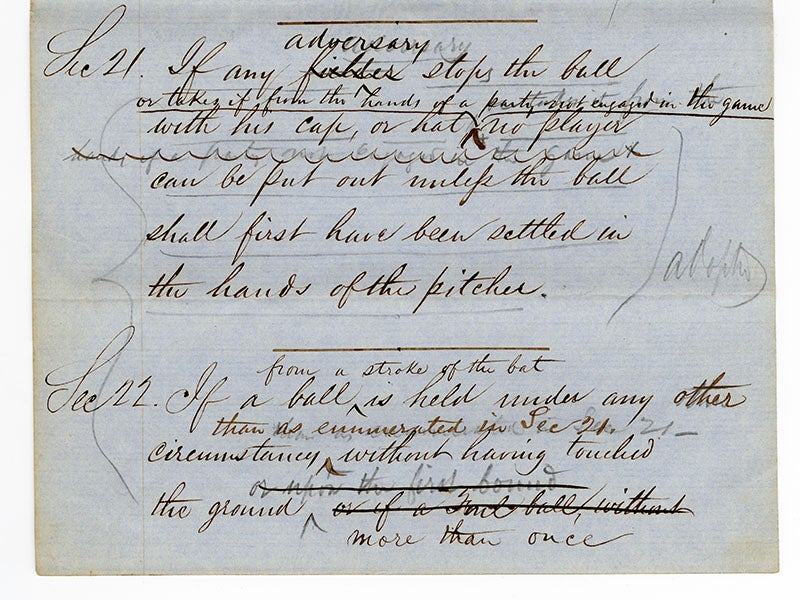 adversary
Sec 21. If any fielder stops the ball
or takes it from the hands of a party not engaged in the game
with his cap, or hat, no player
can be put out unless the ball
shall first have been settled in
the hands of the pitcher.
from a stroke of the bat
Sec 22. If a ball is held under any other
than as enumerated in Sec 21.
circumstances, without having touched
or upon the first bound
the ground or if a Foul ball, without
more than once